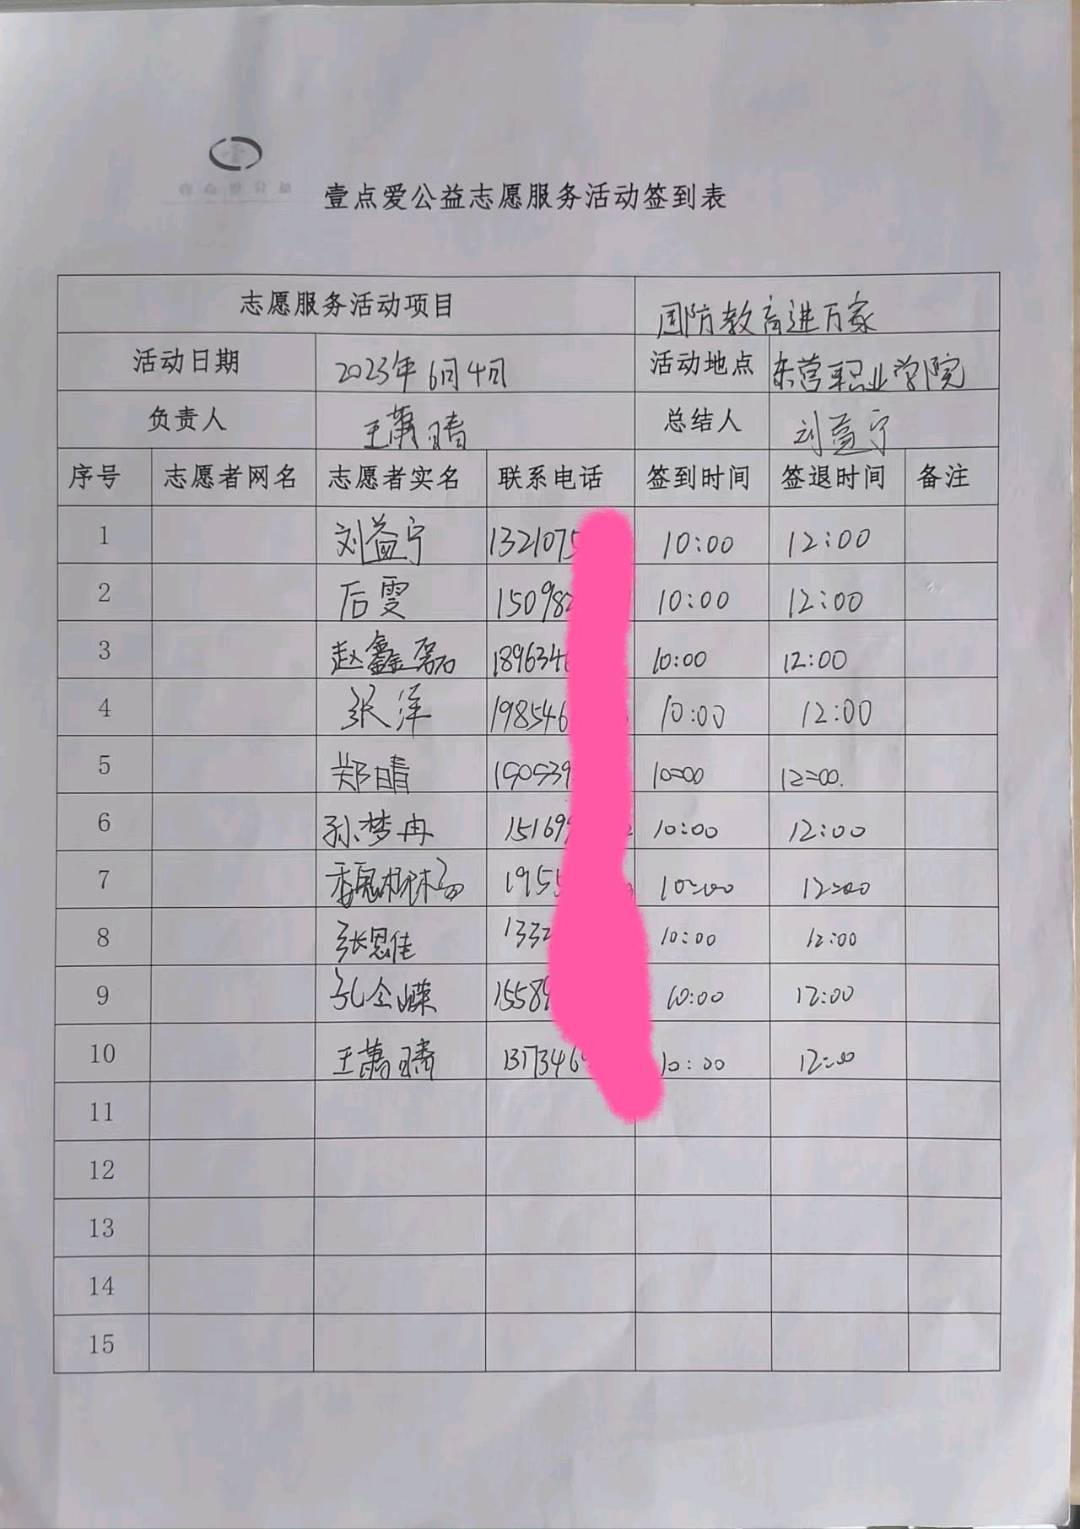 壹点爱公益志愿服务活动签到表
志愿服务活动项目 国防教育进万家
活动日期 2023年6月4日 活动地点 东营职业学院
负责人 王萧晴 总结人 刘益宁
序号 志愿者网名 志愿者实名 联系电话 签到时间 签退时间 备注
1 刘益宁 1321075 10:00 12:00
2 后雯 15098 10:00 12:00
3 赵鑫磊 189634 10:00 12:00
4 张洋 198546 10:00 12:00
5 郑晴 150539 10:00 12:00.
6 孙梦冉 15169 10:00 12:00
7 195 10:00 12:00
8 张恩佳 133 10:00 12:00
9 1558 10:00 12:00
10 王萧晴 137346 10:00 12:00
11
12
13
14
15